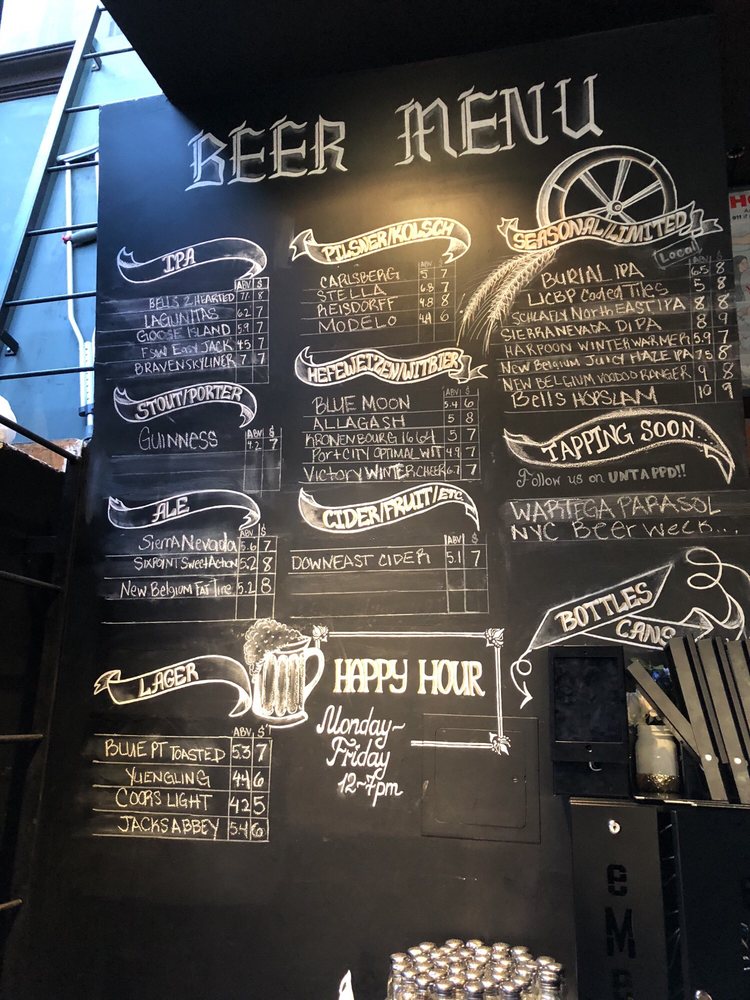 BEER MENU
IPA
ABV $
BELLS 2 HEARTED 7.1 8
LAGUNITAS 6.2 7
GOOSE ISLAND 5.9 7
FSW EASY JACK 4.5 7
BRAVEN SKYLINER 7 7
STOUT/PORTER
ABV $
GUINNESS 4.2 7
ALE
ABV $
SIERRA NEVADA 5.6 7
SIXPOINT SWEET ACTION 5.2 8
NEW BELGIUM FAT TIRE 5.2 8
LAGER
ABV $
BLUE PT TOASTED 5.3 7
YUENGLING 4.4 6
COORS LIGHT 4.2 5
JACKS ABBEY 5.4 6
PILSNER/KOLSCH
ABV $
CARLSBERG 5 7
STELLA 6.8 7
REISDORFF 4.8 8
MODELO 4.4 6
HEFEWEIZEN/WITBIER
ABV $
BLUE MOON 5.4 6
ALLAGASH 5 8
KRONENBOURG 1664 5 7
PORT CITY OPTIMAL WIT 4.9 7
VICTORY WINTER CHEER 6.7 7
CIDER/FRUIT/ETC.
ABV $
DOWNEAST CIDER 5.1 7
HAPPY HOUR
Monday~
Friday
12~7pm
SEASONAL/LIMITED
Local
ABV $
BURIAL IPA 6.5 8
LICBP Coded Tiles 5 8
SCHLAFLY North EAST IPA 8 8
SIERRA NEVADA DIPA 8 9
HARPOON WINTER WARMER 5.9 7
New Belgium Juicy HAZE IPA 7.5 8
NEW BELGIUM VOODOO RANGER 9 8
Bells HOPSLAM 10 9
TAPPING SOON
Follow us on UNTAPPD!!
PARASOL
NYC Beer week....
BOTTLES
CANS